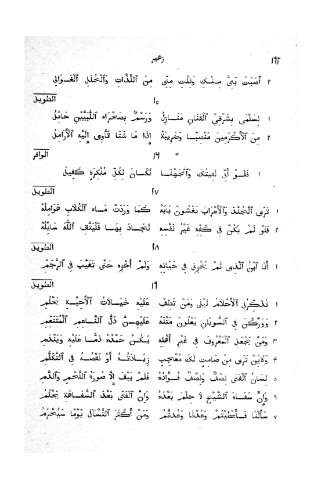 ١٩٢ زهير
٢ أَصَبْتُ بَنِى مِنْكَ وَنِلْتَ مِنِّى مِنَ اللَّذَّاتِ وَالْحُلَلِ الْغَوَالِى
١٥
الطويل
١ لِسَلْمَى بِشَرْقِىِّ الْقَنَانِ مَنَازِلُ وَرَسْمٌ بِصَحْرَاءِ اللُّبَيَّيْنِ حَائِلُ
٢ مِنَ الْأَكْرَمِينَ مَنْصِبًا وَضَرِيبَةً إِذَا مَا شَتَا تَأْوِى إِلَيْهِ الْأَرَامِلُ
١٦
الوافر
١ فَلَوْ أَنِّى لَقِيتُكَ وَاتَّجَهْنَا لَكَانَ لِكُلِّ مُنْكَرَةٍ كَفِيلُ
١٧
الطويل
١ تَرَى الْجُنْدَ وَالْأَعْرَابَ يَغْشَوْنَ بَابَهُ كَمَا وَرَدَتْ مَاءَ الْكُلَابِ هَوَامِلُهْ
٢ فَلَوْ لَمْ يَكُنْ فِى كَفِّهِ غَيْرُ نَفْسِهِ لَجَادَ بِهَا فَلْيَتَّقِ اللّٰهَ سَائِلُهْ
١٨
الطويل
١ أَنَا ابْنُ الَّذِى لَمْ يُخْزِنِى فِى حَيَاتِهِ وَلَمْ أُخْزِهِ حَتَّى تَغَيَّبَ فِى الرَّجَمْ
١٩
الطويل
١ تُذَكِّرُنِى الْأَحْلَامُ لَيْلَى وَمَنْ تُطِفْ عَلَيْهِ خَيَالَاتُ الْأَحِبَّةِ يَحْلُمِ
٢ وَوَرَّكْنَ فِى السُّوبَانِ يَعْلُونَ مَتْنَهُ عَلَيْهِنَّ دَلُّ النَّاعِمِ الْمُتَنَعِّمِ
٣ وَمَنْ يَجْعَلِ الْمَعْرُوفَ فِى غَيْرِ أَهْلِهِ يَكُنْ حَمْدُهُ ذَمًّا عَلَيْهِ وَيَنْدَمِ
٤ وَكَائِنْ تَرَى مِنْ صَامِتٍ لَكَ مُعْجِبٍ زِيَادَتُهُ أَوْ نَقْصُهُ فِى التَّكَلُّمِ
٥ لِسَانُ الْفَتَى نِصْفٌ وَنِصْفٌ فُؤَادُهُ فَلَمْ يَبْقَ إِلَّا صُورَةُ اللَّحْمِ وَالدَّمِ
٦ وَإِنَّ سَفَاهَ الشَّيْخِ لَا حِلْمَ بَعْدَهُ وَإِنَّ الْفَتَى بَعْدَ السَّفَاهَةِ يَحْلُمِ
٧ سَأَلْنَا فَأَعْطَيْتُمْ وَعُدْنَا وَعُدْتُمُ وَمَنْ أَكْثَرَ التَّسْآلَ يَوْمًا سَيُحْرَمِ